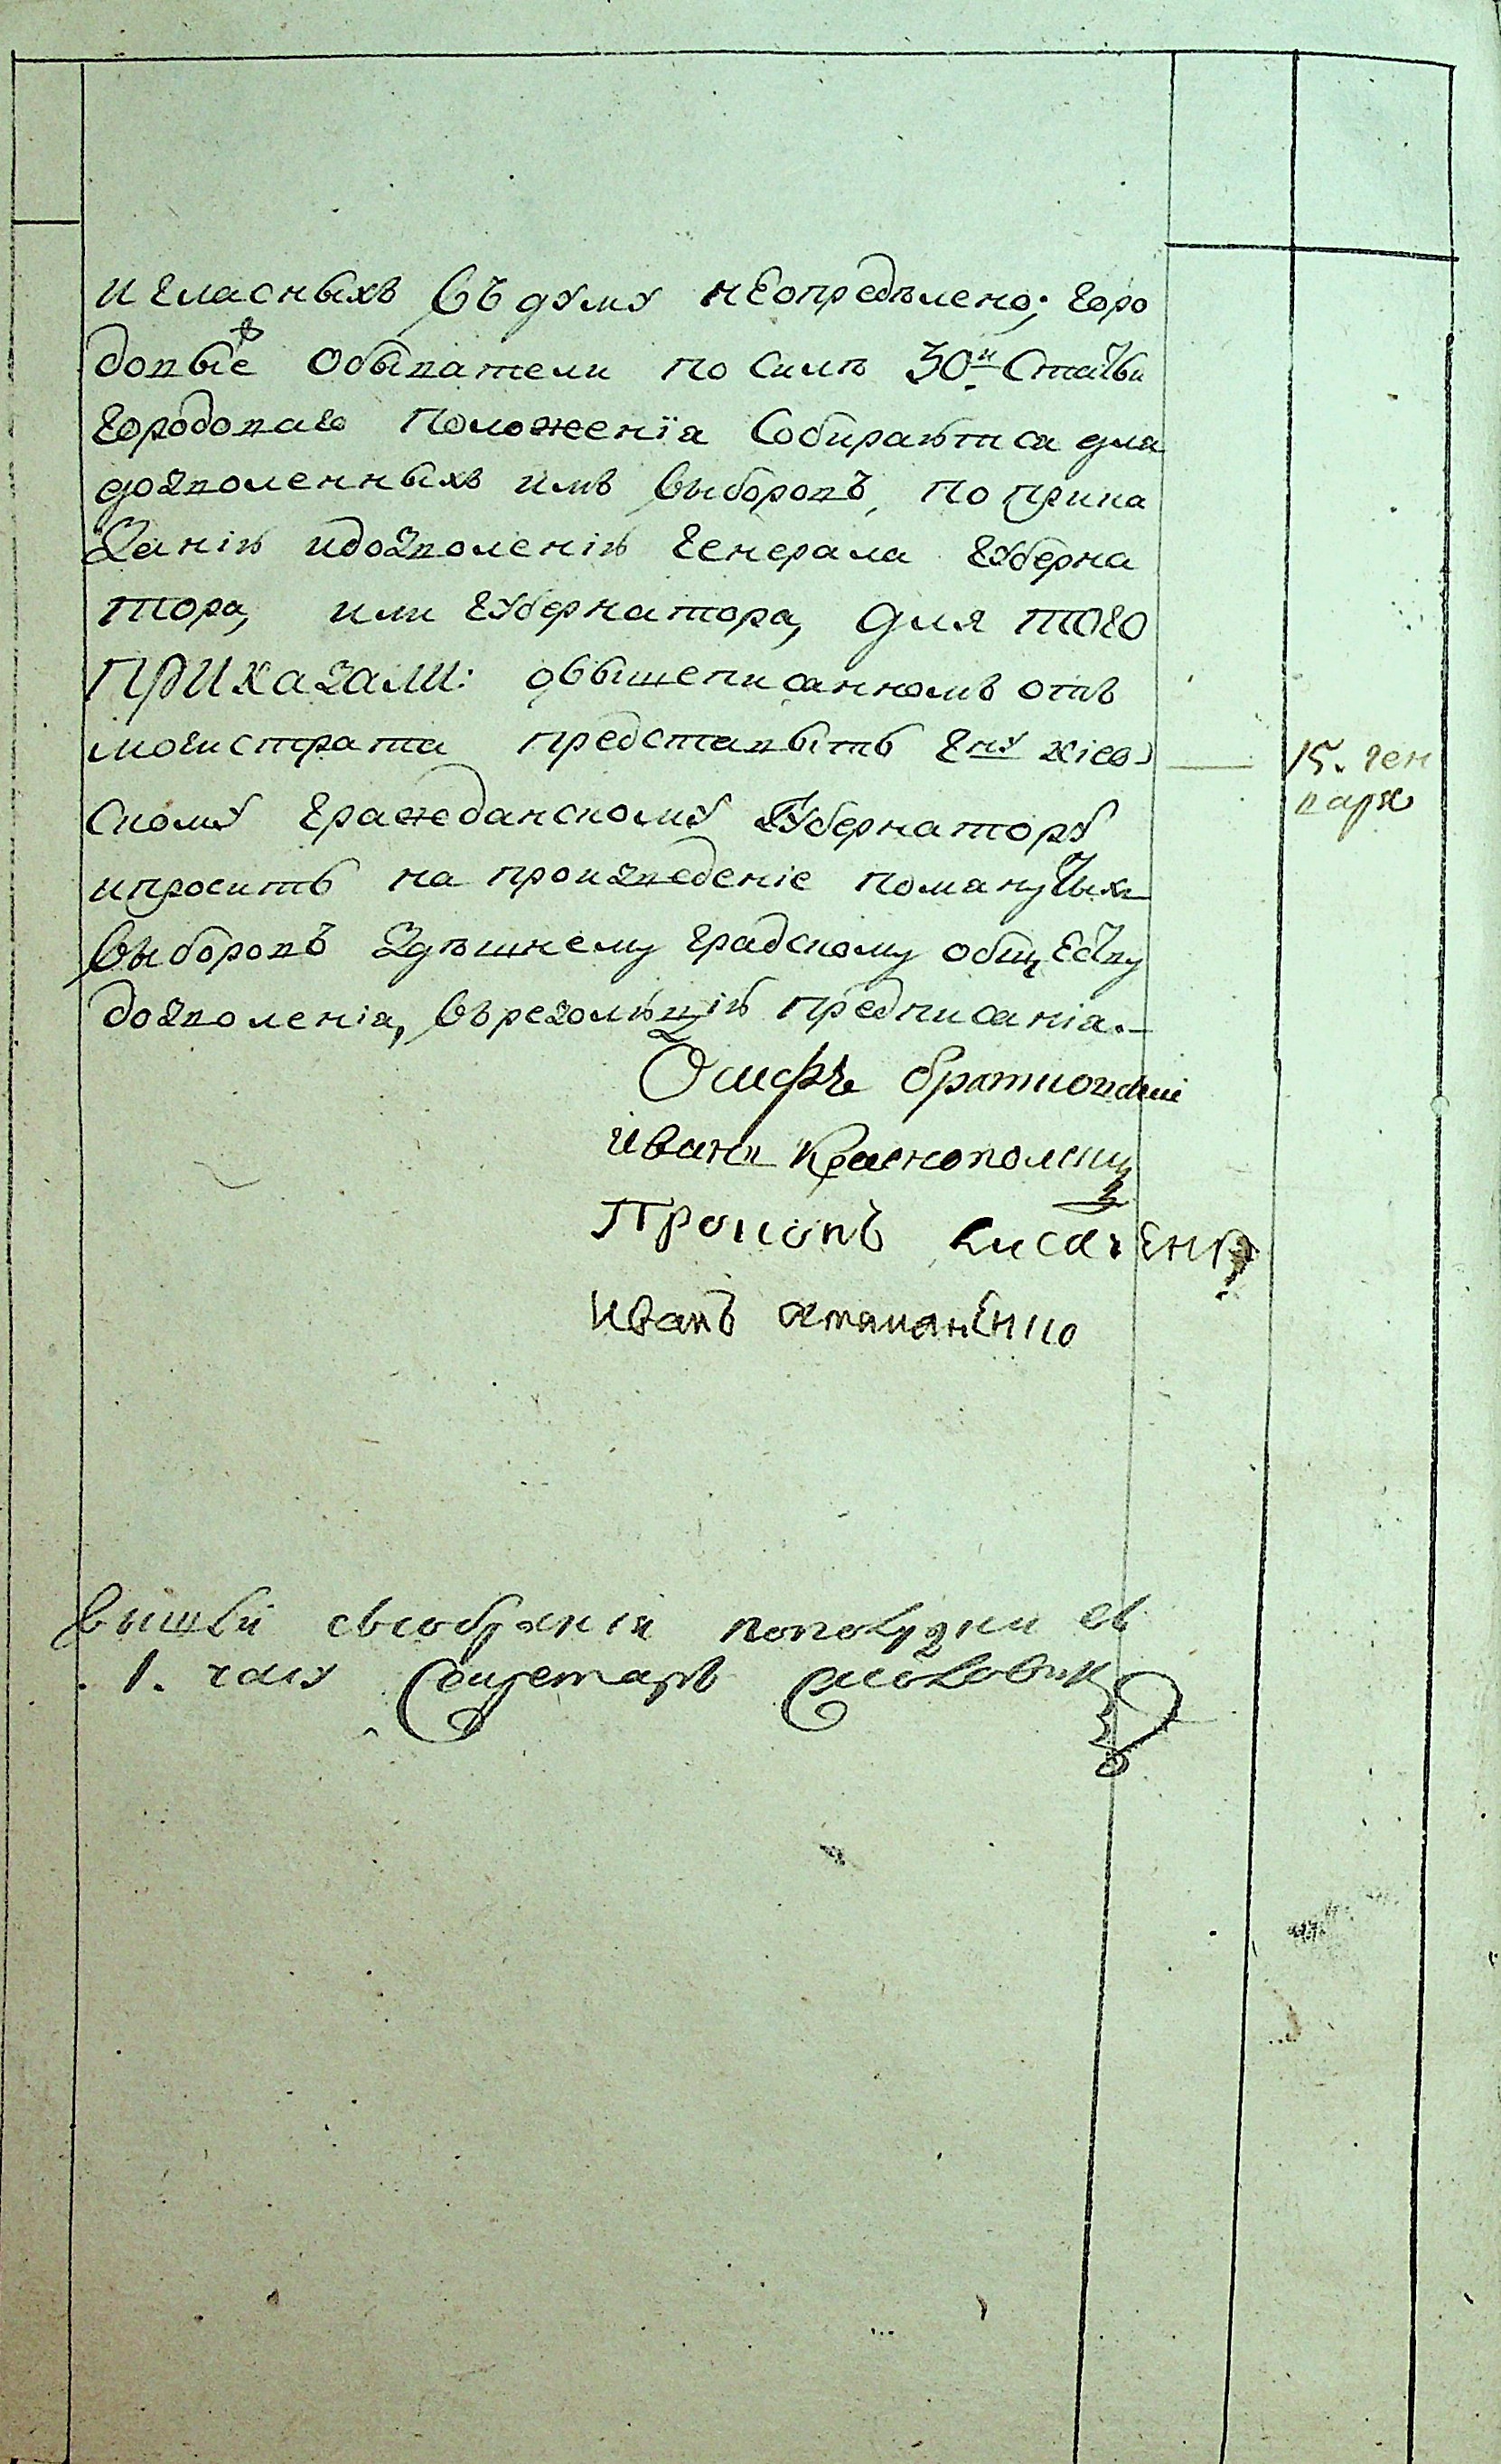 и гласныхъ въ думу неопределено; горо
довые обыватели по силѣ 30й статьи
городоваго положенїя собираются для
дозволенныхъ имъ выборовъ, по прика
занію идозволенію генерала губерна
тора, или губернатора, для того
ПРИказали: овышеписанномъ отъ
могистрата представыть Гну кіев
скому гражданскому губернатору
ипросить на произведеніе помянутыхъ
выборовъ здѣшнему градскому обществу
дозволенія, върезолюцію предписанія.
15. ген
варя
Осифъ
иванъ Краснополский
Прокопъ Кисаченко
Иванъ остапенко
вышли
1. часу Секретарь